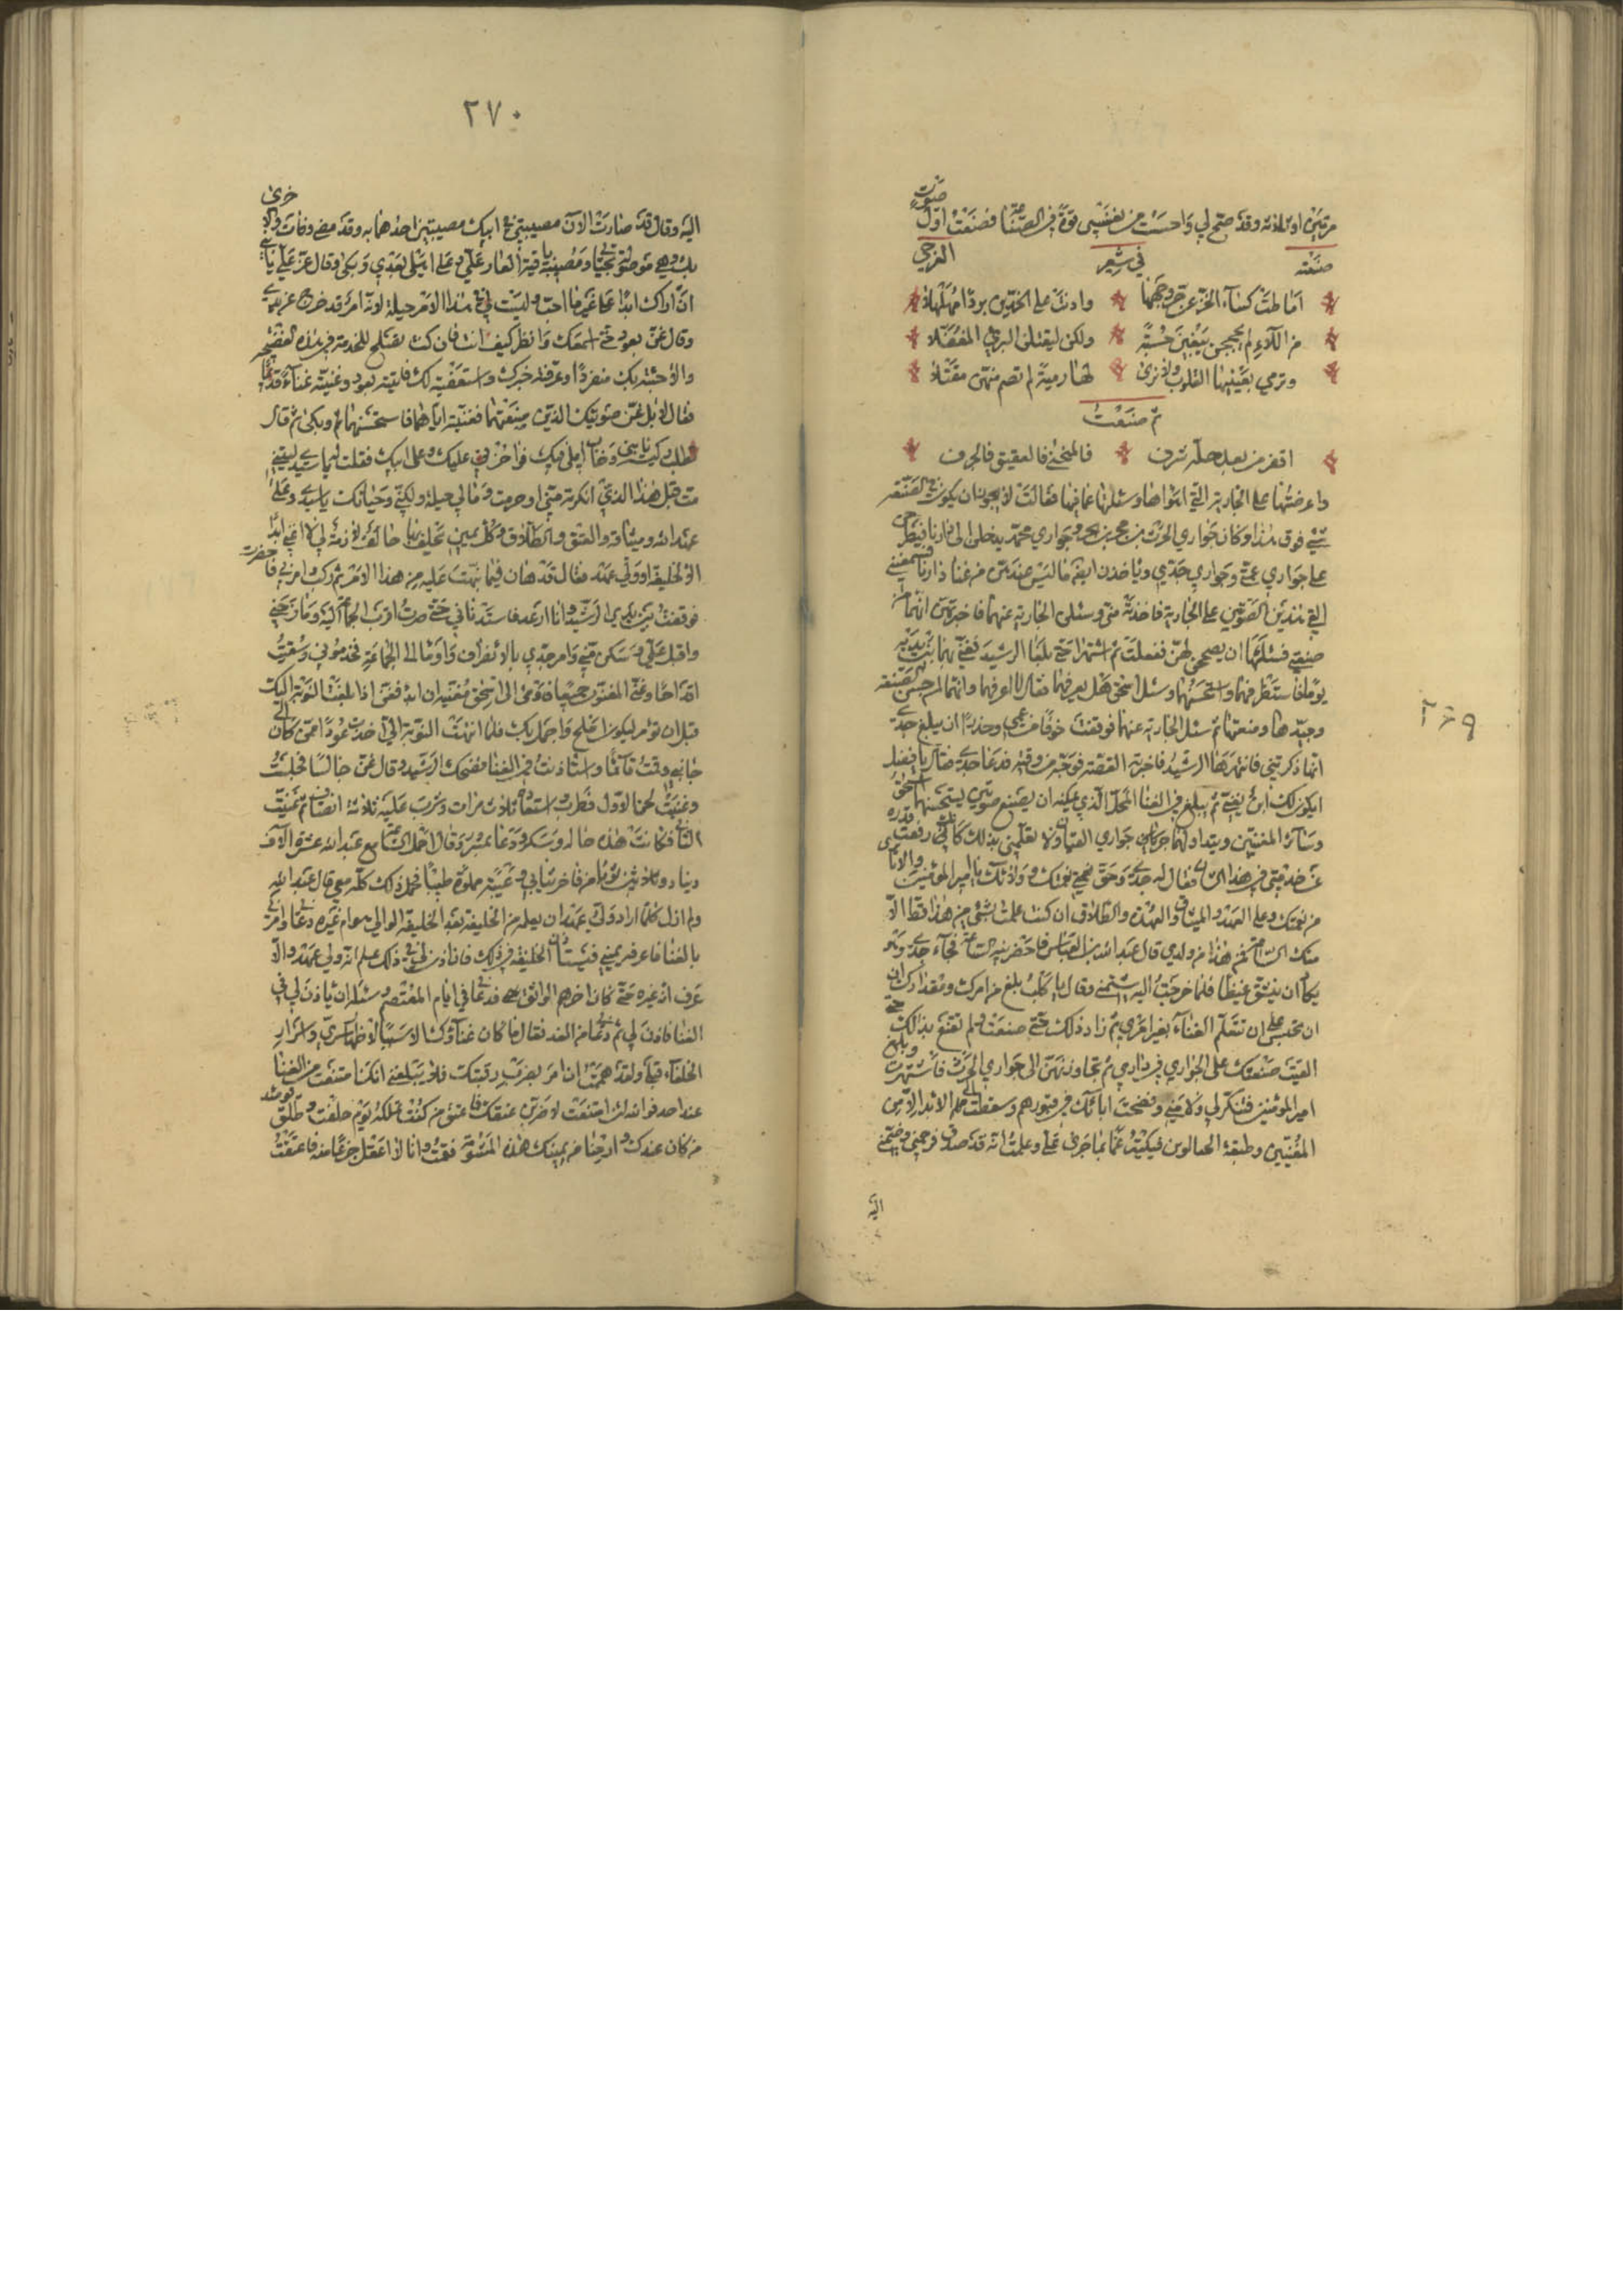 مرتين او ثلاثة وقد صح لي واحسست من نفسي قوة في الصناعة فصنعت اول صوت
صنعته في شعر العرجي
اماطت كساء الخز عن حر وجهها وادنت على الخدين بردا مهلهلا
من اللاء لم يحججن يبغين حسبة ولكن ليقتلن البرئ المغفلا
وترمي بعينيها القلوب ولا ترى لها رمية لم تصم منهن مقتلا
ثم صنعت
اقفر من بعد حلة شرف فالمنحنى فالعقيق فالجرف
وعرضتهما على الجارية التي اهواها وسئلتها عما فيهما فقالت لا يجوز ان يكون في الصنعة
شئ فوق هذا وكان جواري الحرث بن وجواري محمد يدخلن الى دارنا فيطرحن
على جواري عمتي وجواري جدي وياخذن ايضا ما ليس عندهن من غناء دارنا فسمعنني
القي هذين الصوتين على الجارية فاخذنهما مني وسئلن الجارية عنهما فاخبرتهن انهما من
صنعتي فسئلنها ان تصححهما لهن ففعلت ثم اشتهرا حتى بلغا الرشيد فغني بهما بين يديه
يوما فاستظرفهما واستحسنهما وسئل اسحق هل يعرفهما فقال لا اعرفهما وانهما لمن حسن الصنعة
وجيدها ومتقنها ثم سئل الجارية عنهما فوقفت خوفا من عمتي وحذرا ان يبلغ جدي
انها ذكرتني فانتهرها الرشيد فاخبرته القصة فوجه من وقته فدعا جدي فقال يا فضل
ايكون لك ابن يغني ثم يبلغ في الغنا المحل الذي يمكنه ان يصنع صوتين يستحسنهما اسحق
وسائر المغنيين ويتداولهما جواري القيان ولا تعلمني بذلك كانك رفعت قدره
عن خدمتي في هذا فقال له جدي وحق نعمتك وولائك يا امير المؤمنين والا انا
من نعمتك وعلى العهد والميثاق والعهدة والطلاق ان كنت علمت بشئ من هذا قط الا
منك الساعة فمن هذا من ولدي قال عبد الله بن العباس فاحضرنيه الساعة فجاء جدي وهو
يكاد ان ينشق غيظا فلما خرجت اليه شتمني وقال يا كلب بلغ من امرك ومقدارك ان
ان تجسر على ان تتعلم الغناء بغير امري ثم زاد ذلك حتى صنعت ولم تقنع بذلك حتى
القيت صنعتك على الجواري في داري ثم تجاوزتهن الى جواري الحرث فاشتهرت وبلغ
امير المؤمنين فتنكر لي ولامني وفضحت ابائك في قبورهم وسقطت الا من
المغنيين وطبقة الخناكرين فبكيت غما بما جرى علي وعلمت انه قد صدق فرحمني وضمني
اليه
٢٦٩
٢٧٠
اليه وقال قد صارت الان مصيبتي في ابيك مصيبتين احدهما به وقد مضى وفات والاخرى
بك وهي موصولة بحياتي ومصيبة باقية العار علي وعلى اهلي بعدي وبكى وقال عز علي يا بني
ان اراك ابدا على غير ما احب وليست لي في هذا الامر حيلة لانه امر قد خرج عن يدي
وقال غن بعود حتى اسمعك وانظر كيف انت فان كنت تصلح للخدمة في هذه الفضيحة
والا جئته بك منفردا وعرفته خبرك واستعفيته لك فاتيته بعود وغنيته غناء قديما
فقال لا بل غن صوتيك اللذين صنعتهما فغنيته اياهما فاستحسنهما ثم وبكى ثم قال
بطلت يا بني وخاب املي فيك فوا حزني عليك وعلى ابيك فقلت له يا سيدي ليتني
مت قبل هذا الذي انكرته مني او خرست وما لي حيلة ولكني وحياتك يا سيدي وعلي
عهد الله وميثاقه والعتق والطلاق وكل يمين يحلف بها حالف لازمة لي لا اغني ابدا
الا لخليفة او ولي عهد فقال قد هان فيما نبهت عليه من هذا الامر ثم ركب وامرني فاحضرت
فوقفت بين يدي الرشيد وانا ارعد فاستدناني حتى صرت اقرب الجماعة اليه ومازحني
واقبل علي وسكن مني وامر جدي بالانصراف واومى الى الجماعة فحدثوني وسقيت
اقداحا وغنى المغنون جميعا فاومى الي اسحق بعينه ان ابدأ فغن اذا بلغت النوبة اليك
قبل ان تؤمر ليكون اصلح واجمل بك فلما انتهت النوبة الي اخذت عودا ممن كان الى
جانبي وقمت قائما واستأذنت في الغنا فضحك الرشيد وقال غن جالسا فجلست
وغنيت لحنا الاول فطرب واستعاده ثلاث مرات وشرب عليه ثلاثة انصاف ثم غنيت
الثاني فكانت هذه حاله وسكر ودعا بمسرور وقال احمل الساعة مع عبد الله عشرة الاف
دينار وثلاثين ثوبا من فاخر ثيابي وعيبة مملوة طيبا فحمل ذلك كله معي قال عبد الله
ولم ازل كلما اراد ولي عهد ان يعلم من الخليفة بعد الخليفة الوالي اهو ام غيره دعاني وامرني
بالغنا فاعرفه يميني فيستاذن الخليفة في ذلك فان اذن لي في ذلك علم انه ولي عهد والا
عرف انه غيره حتى كان اخرهم الواثق فدعاني في ايام المعتصم وسئله ان ياذن لي في
الغنا فاذن لي ثم دعاني من الغد فقال ما كان غناؤك الا سببا لاظهار سري واسرار
الخلفاء قبلي ولقد هممت ان امر بضرب رقبتك فلا يبلغني انك امتنعت من الغنا
عند احد فوالله لئن امتنعت لاضربن عنقك فاعتق من كنت تملكه يوم حلفت وطلق يومئذ
من كان عندك وارحنا من يمينك هذه المشؤمة فقمت وانا لا اعقل جزعا منه فاعتقت